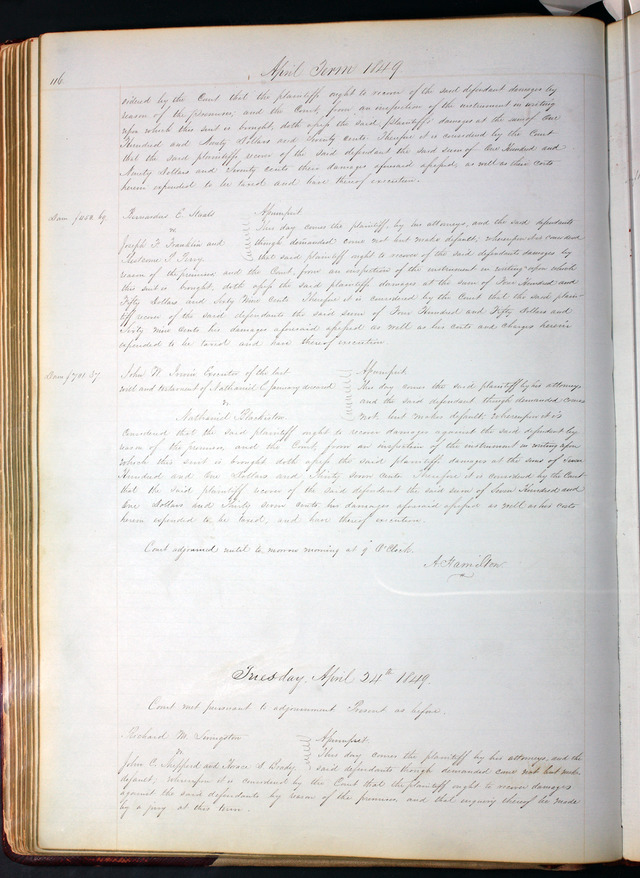 116.
April Term 1849
sidered by the Court that the plaintiffs ought to recover of the said defendant damages by
reason of the premises, and the Court, from an inspection of the instrument in writing
upon which this suit is brought, doth assess the said plaintiffs damages at the sum of One
Hundred and Ninety Dollars and Twenty Cents. Therefore it is considered by the Court
that the said plaintiffs recover of the said defendant the said sum of One Hundred and
Ninety Dollars and Twenty Cents their damages aforesaid assessed, as well as their costs
herein expended to be taxed and have thereof execution.
Dam $452.69.
Bernardus E. Staats
vs
Joseph F. Franklin and
Perry
Assumpsit
This day comes the plaintiff, by his attorneys, and the said defendants
though demanded come not but makes default; wherefore it is considered
that said plaintiff ought to recover of the said defendants damages by
reason of the premises and the Court, from an inspection of the instrument in writing upon which
this suit is brought, doth assess the said plaintiffs damages at the sum of Four Hundred and
Fifty Dollars and Sixty Nine Cents Therefore it is considered by the Court that the said plain-
tiff recover of the said defendants the said sum of Four Hundred and Fifty Dollars and
Sixty Nine Cents his damages aforesaid assessed as well as his costs and charges herein
expended to be taxed and have thereof execution
John W. Irvine Executor of the last
will and testament of Nathaniel C. January deceased
vs
Nathaniel Blackiston
Assumpsit
This day comes the said plaintiff by his attorneys
and the said defendant though demanded comes
not but makes default; wherefore it is
considered that the said plaintiff ought to recover damages against the said defendant by
reason of the premises and the Court, from an inspection of the instrument in writing upon
which this suit is brought doth assess the said plaintiffs damages at the sum of Seven
Hundred and One Dollars and Thirty Seven Cents Therefore it is considered by the Court
that the said plaintiff recover of the said defendant the said sum of Seven Hundred and
One Dollars and Thirty Seven Cents, his damages aforesaid assessed as well as his costs
herein expended to be taxed, and have thereof execution.
Court adjourned until to morrow morning at 9 O'Clock.
A. Hamilton
Tuesday, April 24th 1849.
Court met pursuant to adjournment Present as before.
Richard M. Livingston
vs
John C. Sheppard and Horace S. Brady
Assumpsit
This day comes the plaintiff by his attorneys, and the
said defendants though demanded come not but make
default; wherefore it is considered by the Court that the plaintiff ought to recover damages
against the said defendants by reason of the premises and that enquiry thereof be made
by a jury at this term.